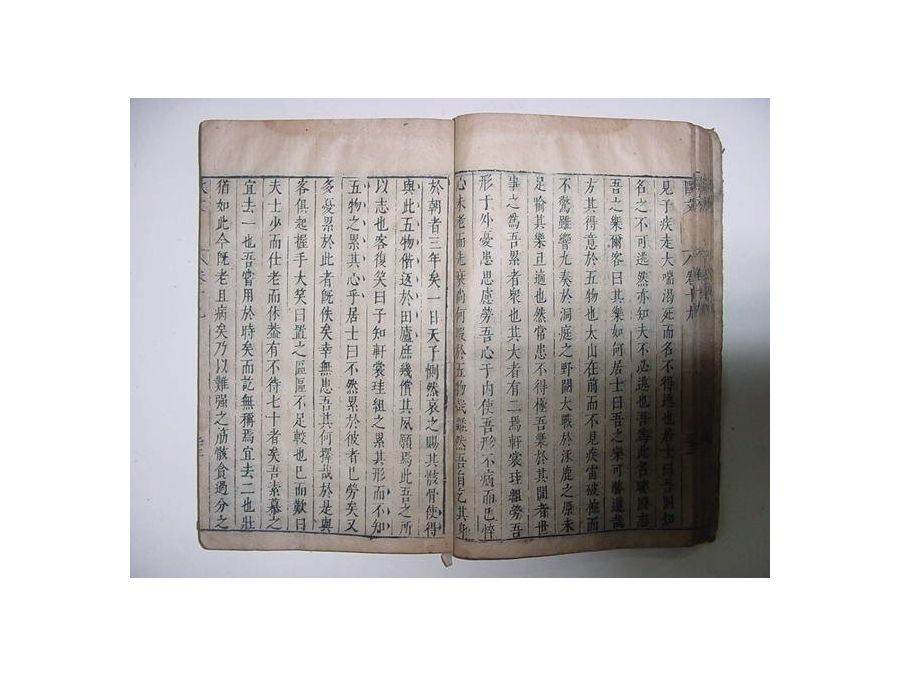 歐文 卷十九
見子疾走大喘渴死而名不得逃也居士曰吾固知
名之不可逃然亦知夫不必逃也吾爲此名聊以志
吾之樂爾客曰其樂如何居士曰吾之樂可勝道哉
方其得意於五物也太山在前而不見疾雷破柱而
不驚雖響九奏於洞庭之野閱大戰於涿鹿之原未
足喻其樂且適也然常患不得極吾樂於其間者世
事之爲吾累者衆也其大者有二焉軒裳珪組勞吾
形于外憂患思慮勞吾心于內使吾形不病而已悴
心未老而先衰尚何暇於五物哉雖然吾自乞其身
於朝者三年矣一日天子惻然哀之賜其骸骨使得
與此五物偕返於田廬庶幾償其夙願焉此吾之所
以志也客復笑曰子知軒裳珪組之累其形而不知
五物之累其心乎居士曰不然累於彼者已勞矣又
多憂累於此者既佚矣幸無患吾其何擇哉於是與
客俱起握手大笑曰置之區區不足較也已而歎曰
夫士少而仕老而休葢有不待七十者矣吾素慕之
宜去一也吾嘗用於時矣而訖無稱焉宜去二也壯
猶如此今既老且病矣乃以難强之筋骸貪過分之